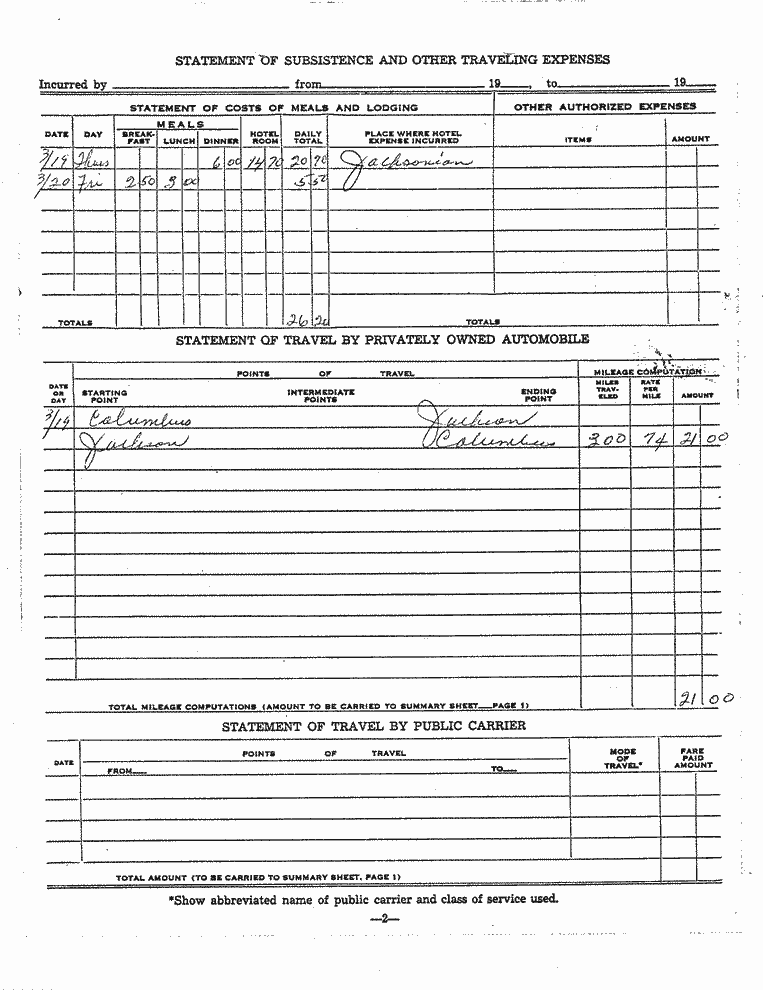 STATEMENT OF SUBSISTENCE AND OTHER TRAVELING EXPENSES
Incurred by from 19 , to 19
STATEMENT OF COSTS OF MEALS AND LODGING OTHER AUTHORIZED EXPENSES
DATE DAY MEALS BREAK-FAST LUNCH DINNER HOTEL ROOM DAILY TOTAL PLACE WHERE HOTEL EXPENSE INCURRED ITEMS AMOUNT
3/19 Thurs 6 00 14 70 20 70 Jacksonian
3/20 Fri 2 50 3 00 5 50
TOTALS 26 20 TOTALS
STATEMENT OF TRAVEL BY PRIVATELY OWNED AUTOMOBILE
POINTS OF TRAVEL MILEAGE COMPUTATION
DATE OR DAY STARTING POINT INTERMEDIATE POINTS ENDING POINT MILES TRAV-ELED RATE PER MILE AMOUNT
3/19 Columbus Jackson
Jackson Columbus 300 21 00
TOTAL MILEAGE COMPUTATIONS (AMOUNT TO BE CARRIED TO SUMMARY SHEET—PAGE 1) 21 00
STATEMENT OF TRAVEL BY PUBLIC CARRIER
DATE POINTS OF TRAVEL MODE OF TRAVEL* FARE PAID AMOUNT
FROM— TO—
TOTAL AMOUNT (TO BE CARRIED TO SUMMARY SHEET, PAGE 1)
*Show abbreviated name of public carrier and class of service used.
—2—